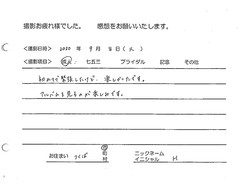 撮影お疲れ様でした。 感想をお願いいたします。
＜撮影日時＞ 2020 年 9 月 8 日（火）
＜撮影項目＞ 成人 ・ 七五三 ブライダル 記念 その他
初めてで緊張したけど、楽しかったです。
アルバムを見るのが楽しみです。
お住まい つくば 市 町 村 ニックネーム イニシャル H